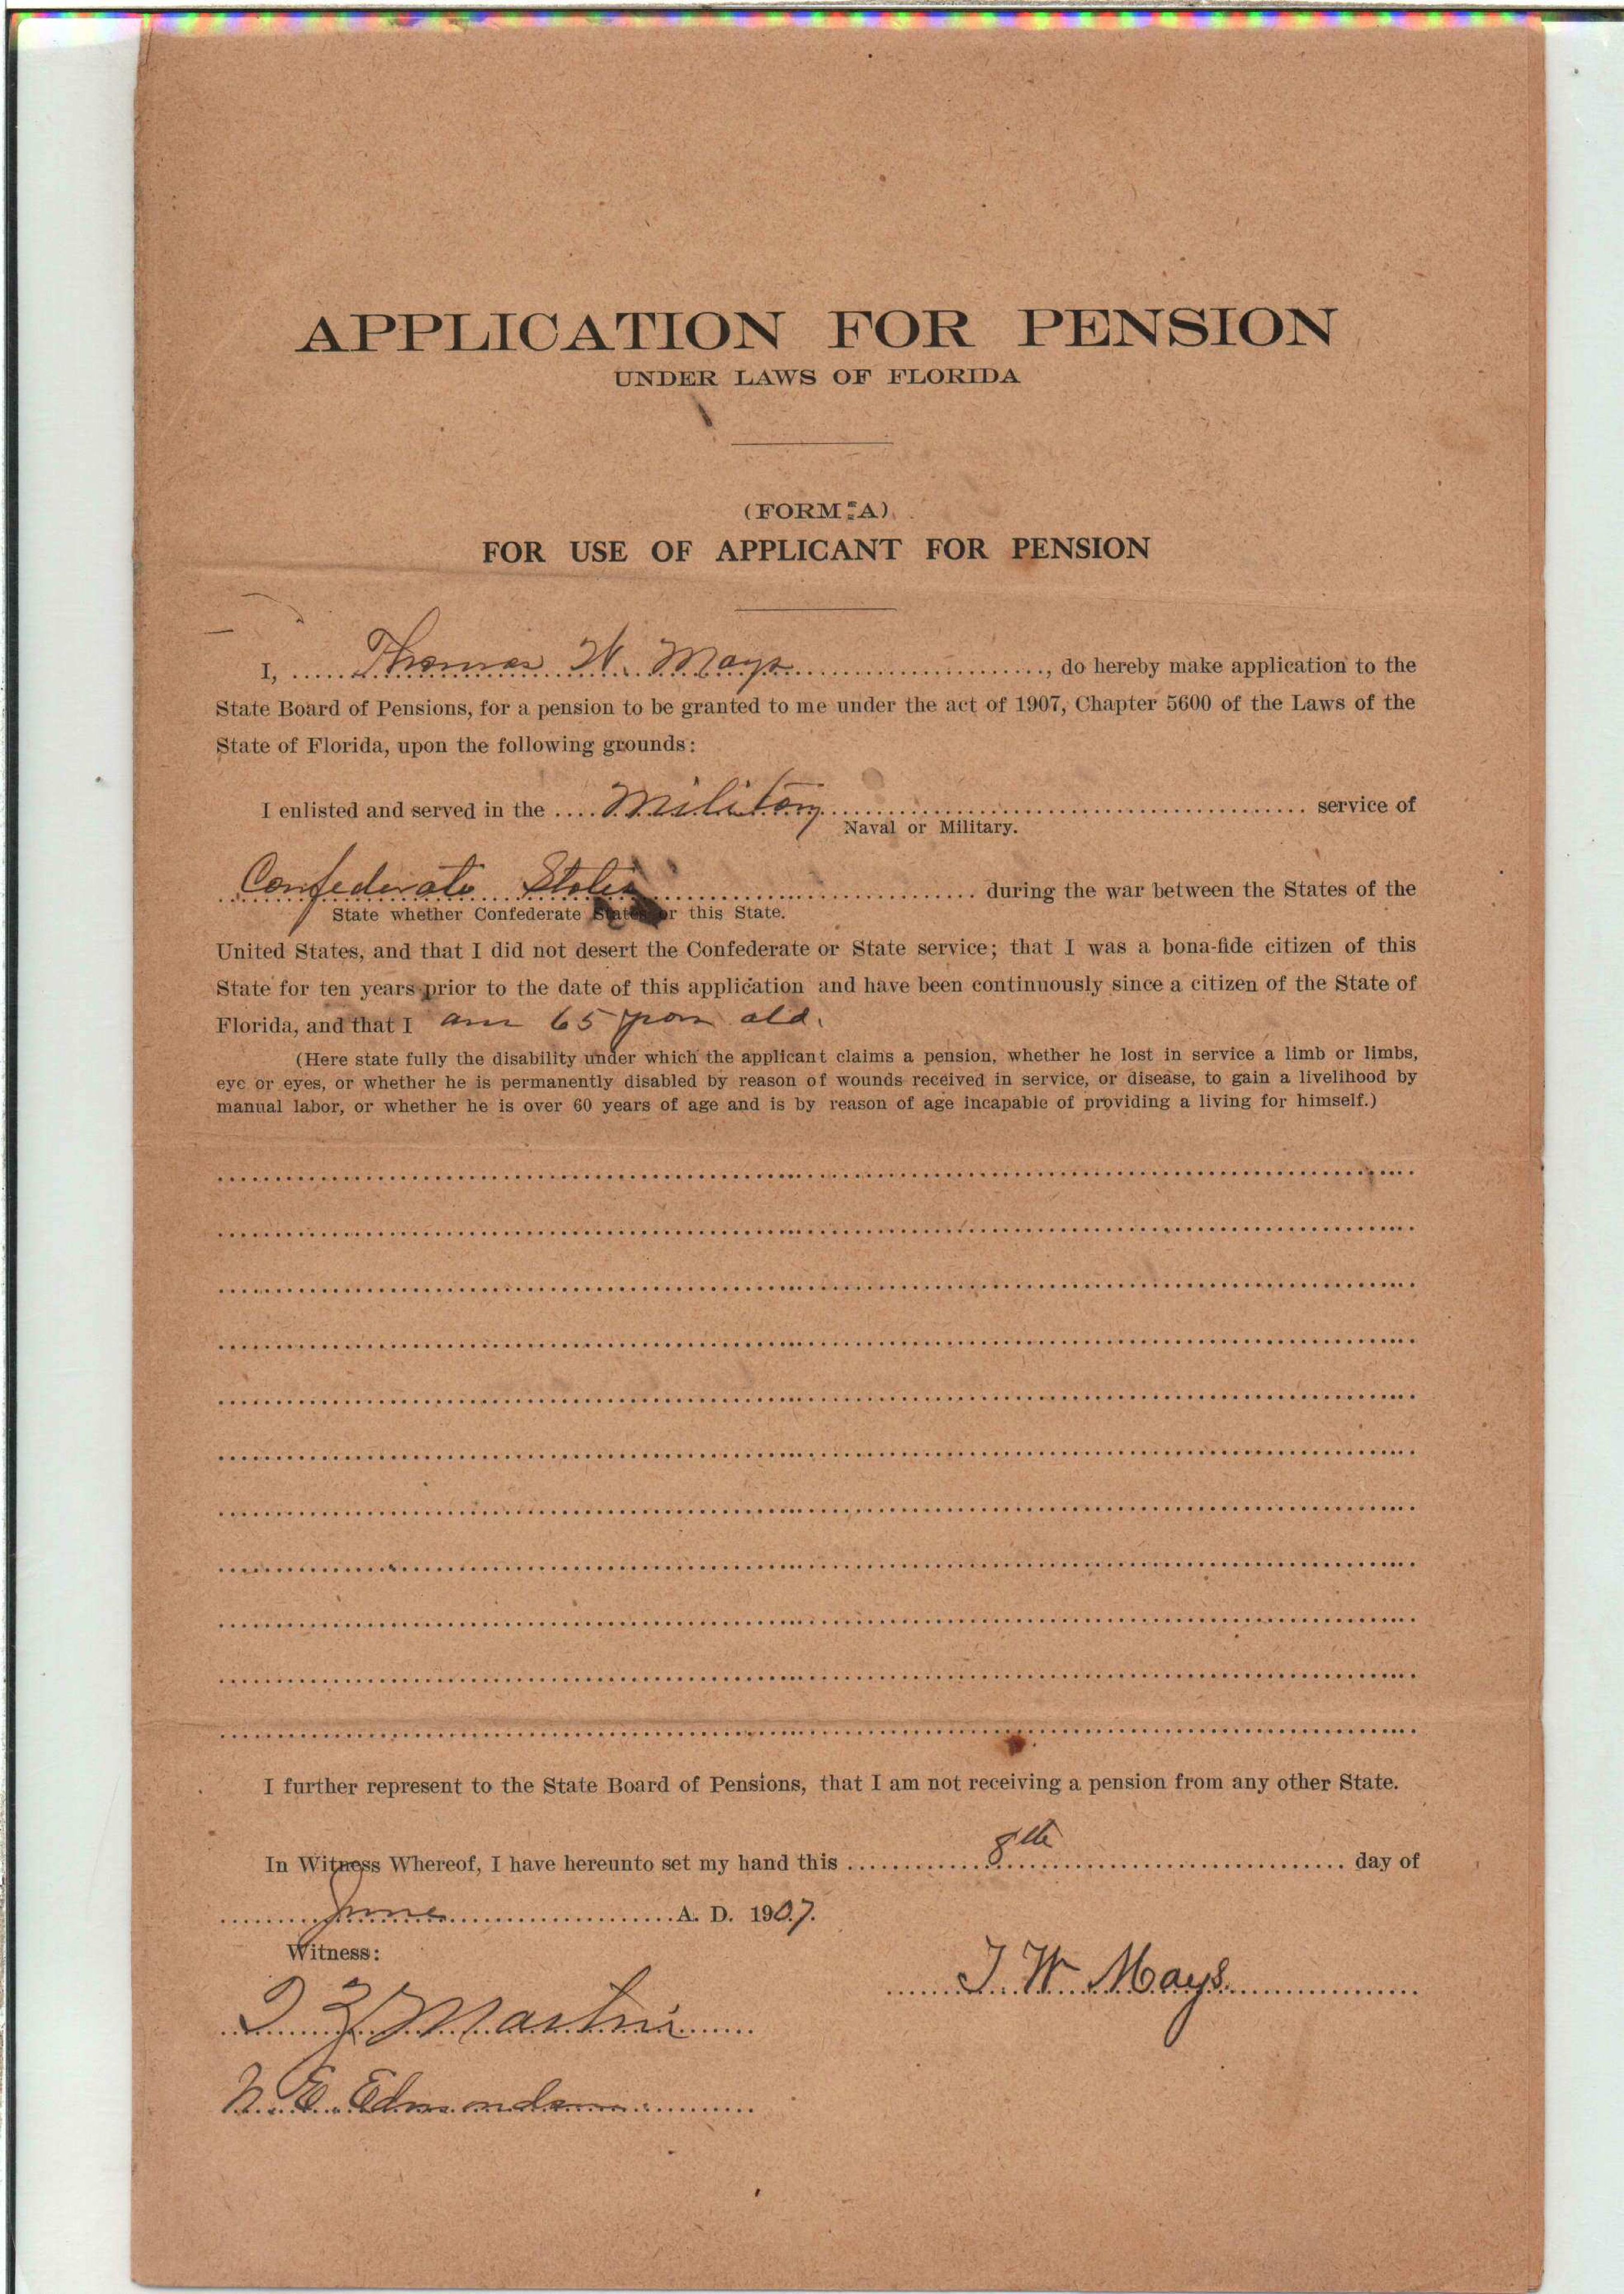 APPLICATION FOR PENSION
UNDER LAWS OF FLORIDA
(FORM A)
FOR USE OF APPLICANT FOR PENSION
I, Thomas W. Mays, do hereby make application to the
State Board of Pensions, for a pension to be granted to me under the act of 1907, Chapter 5600 of the Laws of the
State of Florida, upon the following grounds:
I enlisted and served in the Military service of
Naval or Military.
Confederate States during the war between the States of the
State whether Confederate States or this State.
United States, and that I did not desert the Confederate or State service; that I was a bona-fide citizen of this
State for ten years prior to the date of this application and have been continuously since a citizen of the State of
Florida, and that I am 65 years old.
(Here state fully the disability under which the applicant claims a pension, whether he lost in service a limb or limbs,
eye or eyes, or whether he is permanently disabled by reason of wounds received in service, or disease, to gain a livelihood by
manual labor, or whether he is over 60 years of age and is by reason of age incapable of providing a living for himself.)
I further represent to the State Board of Pensions, that I am not receiving a pension from any other State.
In Witness Whereof, I have hereunto set my hand this 8th day of
June A. D. 1907.
Witness:
T. W. Mays
Martin
N. E. Edmondson